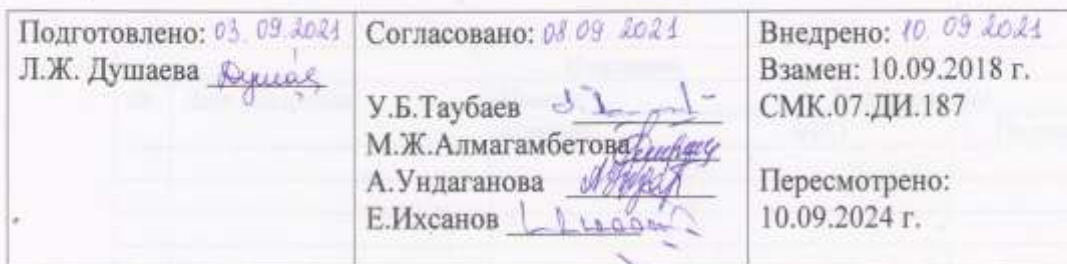 Подготовлено: 03.09.2021
Л.Ж. Душаева
Согласовано: 08.09.2021
У.Б.Таубаев
М.Ж.Алмагамбетова
А.Ундаганова
Е.Ихсанов
Внедрено: 10.09.2021
Взамен: 10.09.2018 г.
СМК.07.ДИ.187
Пересмотрено:
10.09.2024 г.